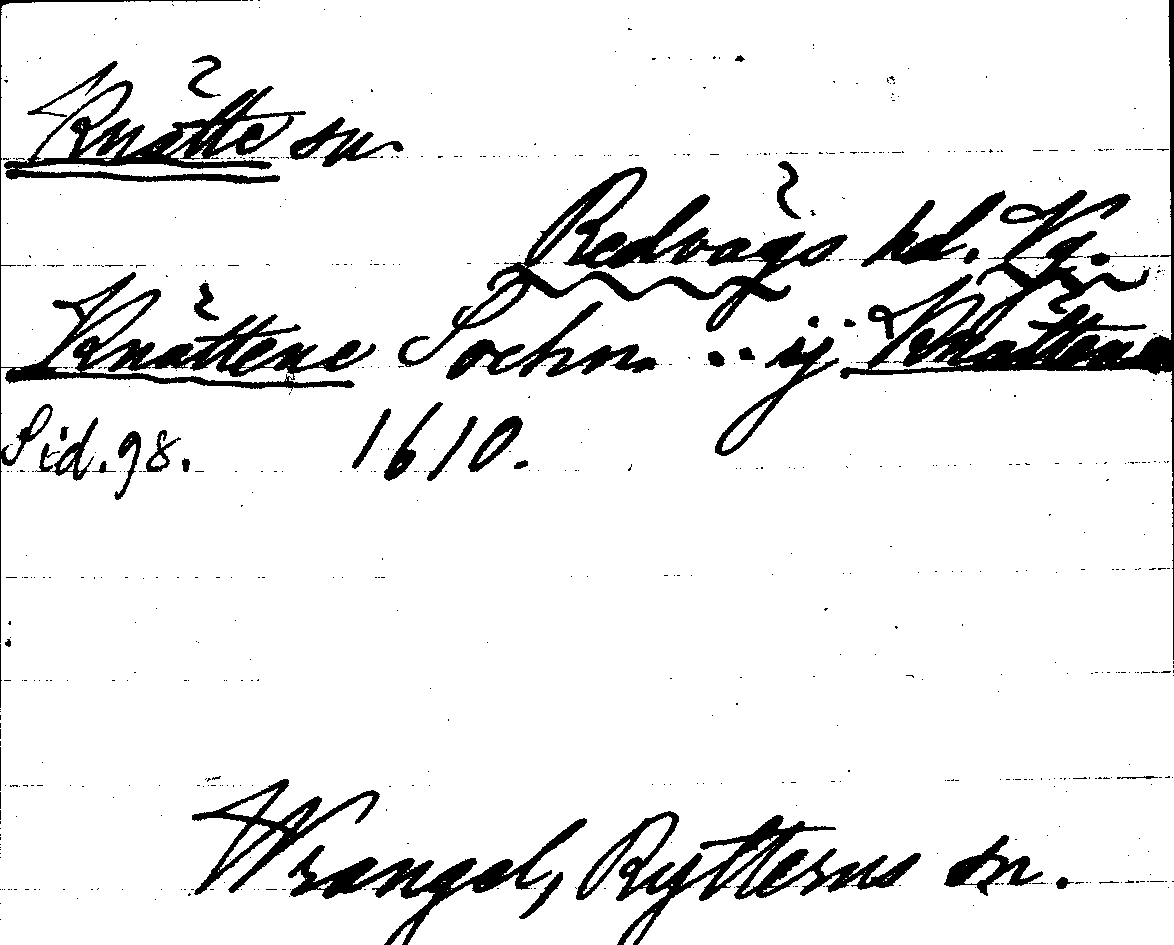 Knätte sn.
Redvägs hd. Vg.
Knättene Sochn. .. ij Knättene
Sid. 98. 1610.
Wrangel, Rytterns sn.